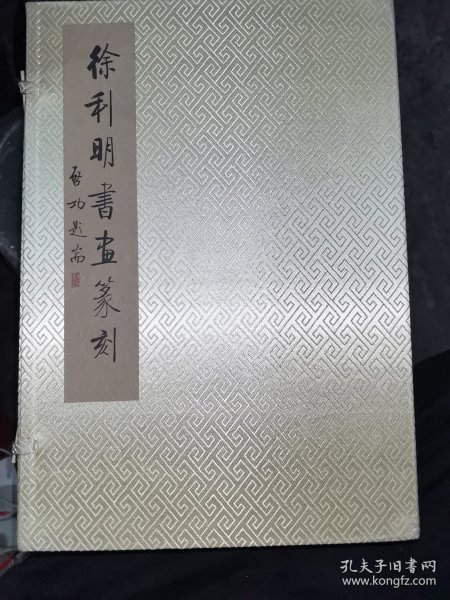 徐利明書画篆刻
启功题耑
孔夫子旧书网
www.kongfz.com